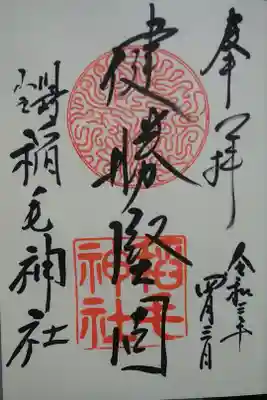 奉拝
令和三年
四月三日
健勝堅固
稲毛神社
稲毛
神社